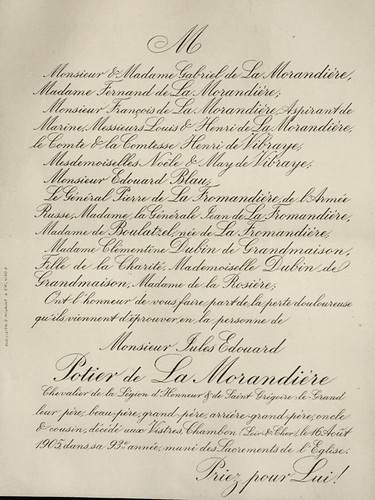 M
Monsieur & Madame Gabriel de La Morandière,
Madame Fernand de La Morandière;
Monsieur François de La Morandière, Aspirant de
Marine, Messieurs Louis & Henri de La Morandière,
le Comte & la Comtesse Henri de Vibraye,
Mesdemoiselles Noële & May de Vibraye;
Monsieur Edouard Blau;
Le Général Pierre de La Fromandière, de l'Armée
Russe, Madame la Générale Jean de La Fromandière,
Madame de Boulatzel née de La Fromandière;
Madame Clémentine Dubin de Grandmaison,
Fille de la Charité, Mademoiselle Dubin de
Grandmaison, Madame de la Rosière;
Ont l'honneur de vous faire part de la perte douloureuse
qu'ils viennent d'éprouver, en la personne de
Monsieur Jules Edouard
Potier de La Morandière
Chevalier de la Légion d'Honneur & de Saint-Grégoire-le-Grand
leur père, beau-père, grand-père, arrière-grand-père, oncle
& cousin, décédé aux Vistres, Chambon (Loir-&-Cher), le 16 Août
1905, dans sa 93e année, muni des Sacrements de l'Eglise.
Priez pour Lui!